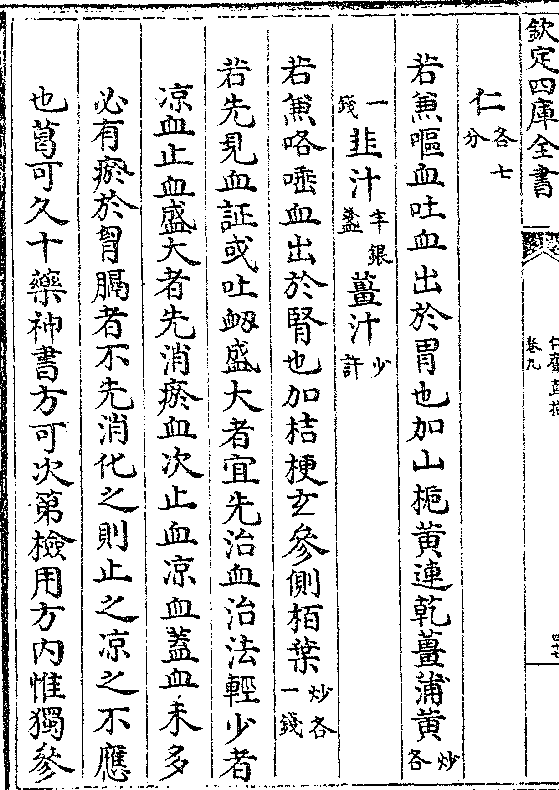 欽定四庫全書
卷九
仁各七分
若兼嘔血吐血出於胃也加山梔黃連乾薑蒲黃炒各
一錢韭汁半銀盞薑汁少許
若兼咯唾血出於腎也加桔梗玄參側栢葉炒各一錢
若先見血証或吐衂盛大者宜先治血治法輕少者
凉血止血盛大者先消瘀血次止血凉血蓋血来多
必有瘀於胷膈者不先消化之則止之凉之不應
也葛可久十藥神書方可次第檢用方内惟獨參